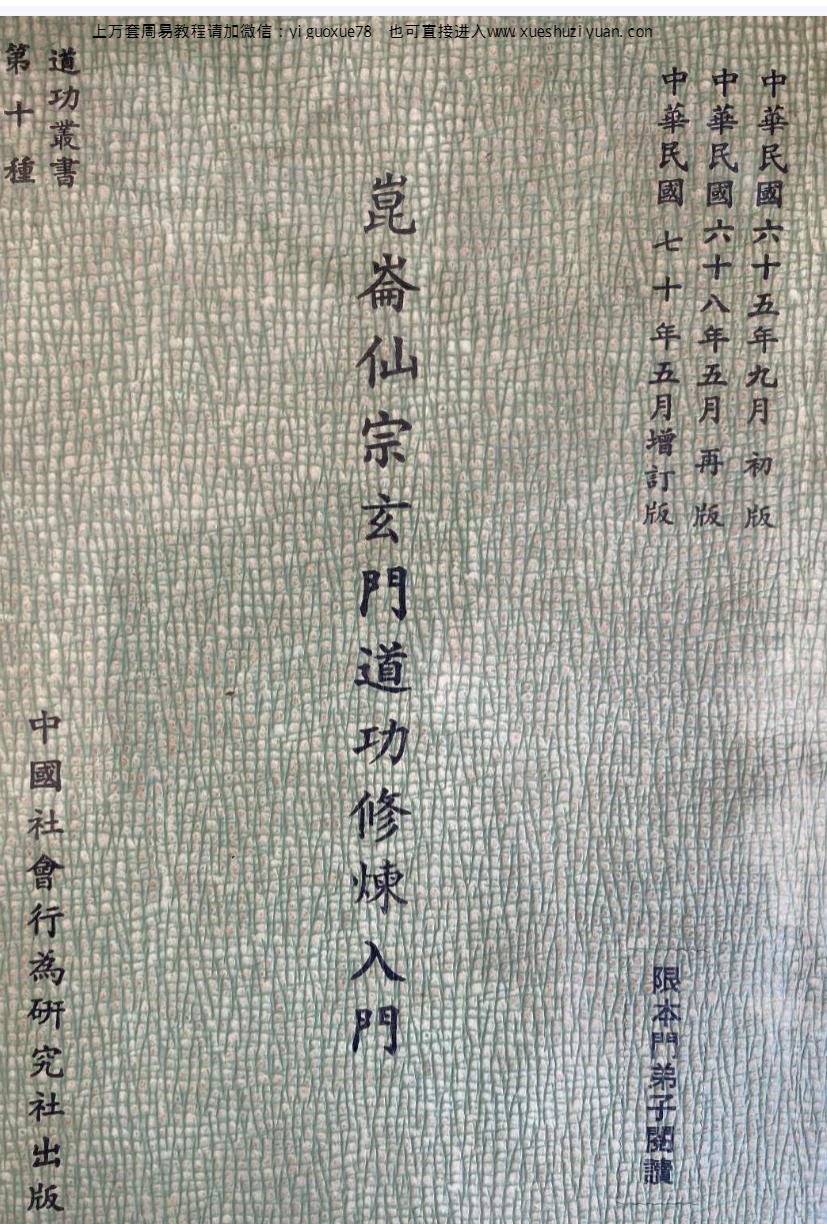 上万套周易教程请加微信：yiguoxue78 也可直接进入www.xueshuziyuan.com
中華民國六十五年九月初版
中華民國六十八年五月再版
中華民國七十年五月增訂版
限本門弟子閱讀
崑崙仙宗玄門道功修煉入門
道功叢書
第十種
中國社會行為研究社出版